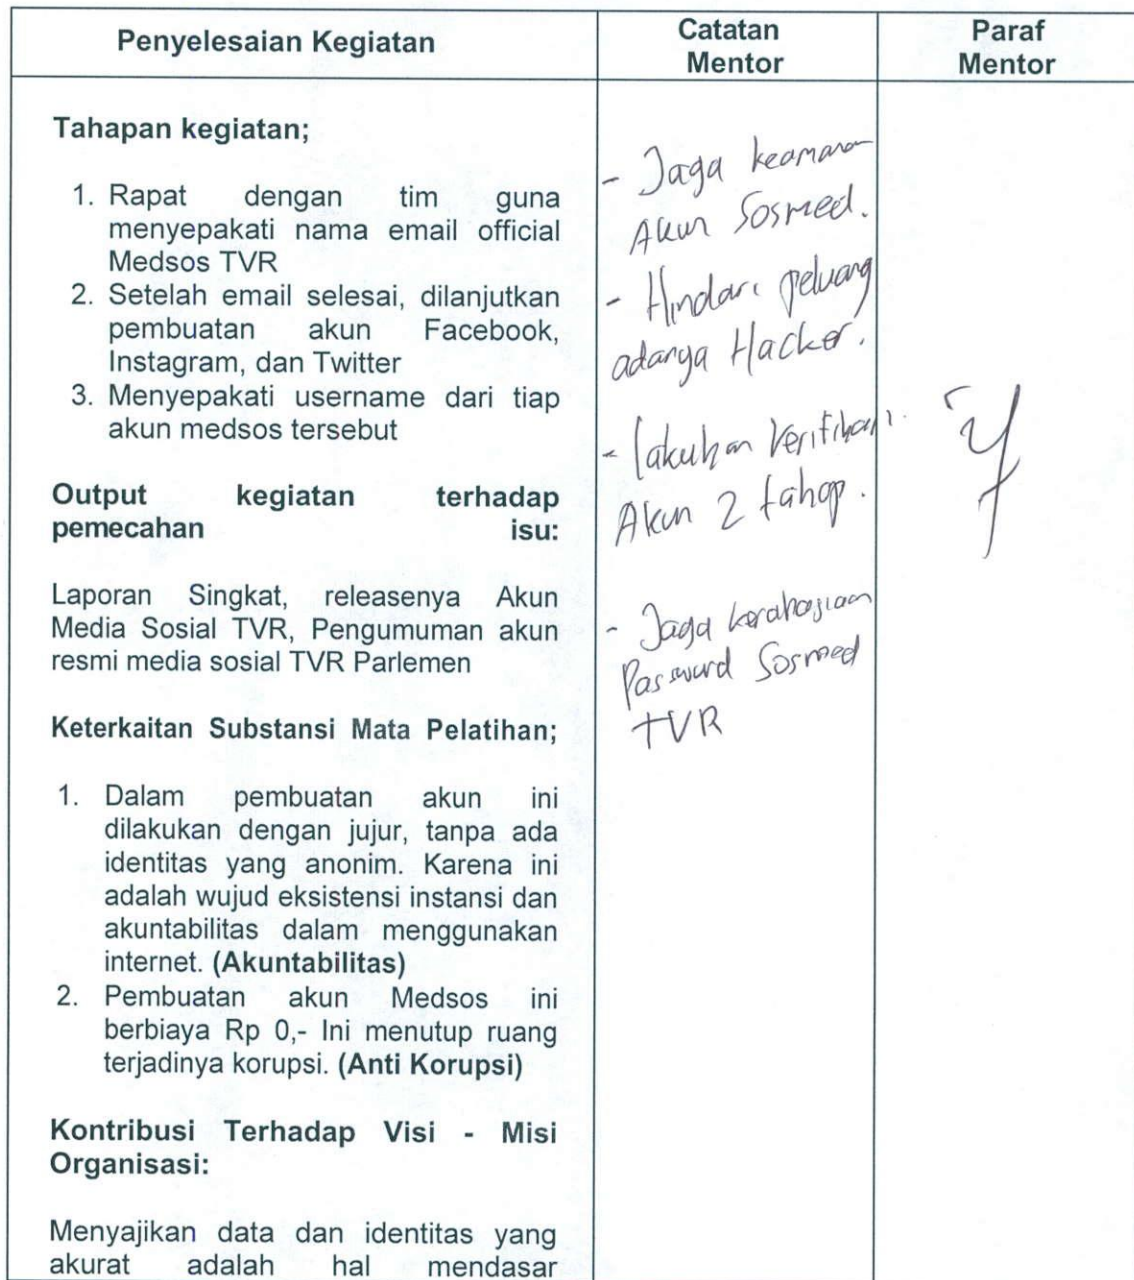 Penyelesaian Kegiatan
Catatan
Mentor
Paraf
Mentor
Tahapan kegiatan;
1. Rapat dengan tim guna
menyepakati nama email official
Medsos TVR
2. Setelah email selesai, dilanjutkan
pembuatan akun Facebook,
Instagram, dan Twitter
3. Menyepakati username dari tiap
akun medsos tersebut
Output kegiatan terhadap
pemecahan isu:
Laporan Singkat, releasenya Akun
Media Sosial TVR, Pengumuman akun
resmi media sosial TVR Parlemen
Keterkaitan Substansi Mata Pelatihan;
1. Dalam pembuatan akun ini
dilakukan dengan jujur, tanpa ada
identitas yang anonim. Karena ini
adalah wujud eksistensi instansi dan
akuntabilitas dalam menggunakan
internet. (Akuntabilitas)
2. Pembuatan akun Medsos ini
berbiaya Rp 0,- Ini menutup ruang
terjadinya korupsi. (Anti Korupsi)
Kontribusi Terhadap Visi - Misi
Organisasi:
Menyajikan data dan identitas yang
akurat adalah hal mendasar
- Jaga keamanan
Akun Sosmed.
- Hindari peluang
adanya Hacker.
- lakukan Verifikasi
Akun 2 tahap.
- Jaga kerahasiaan
Password Sosmed
TVR